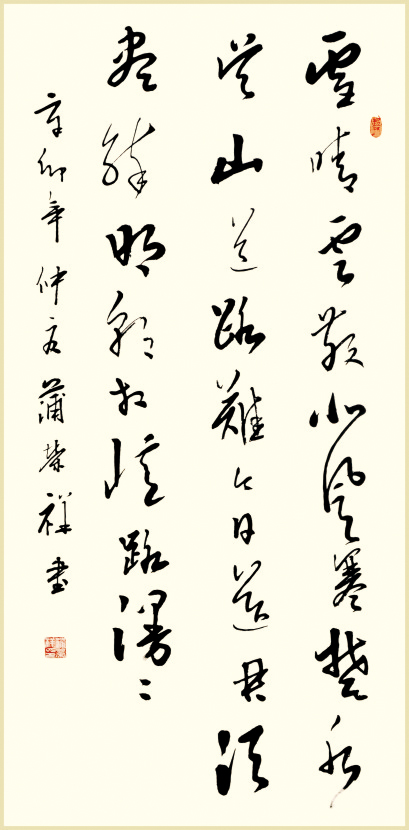 雪晴雲散北風寒楚水
吴山道路難今日送君须
尽醉明朝相憶路漫〻
辛卯年仲夏蒲荣祥书